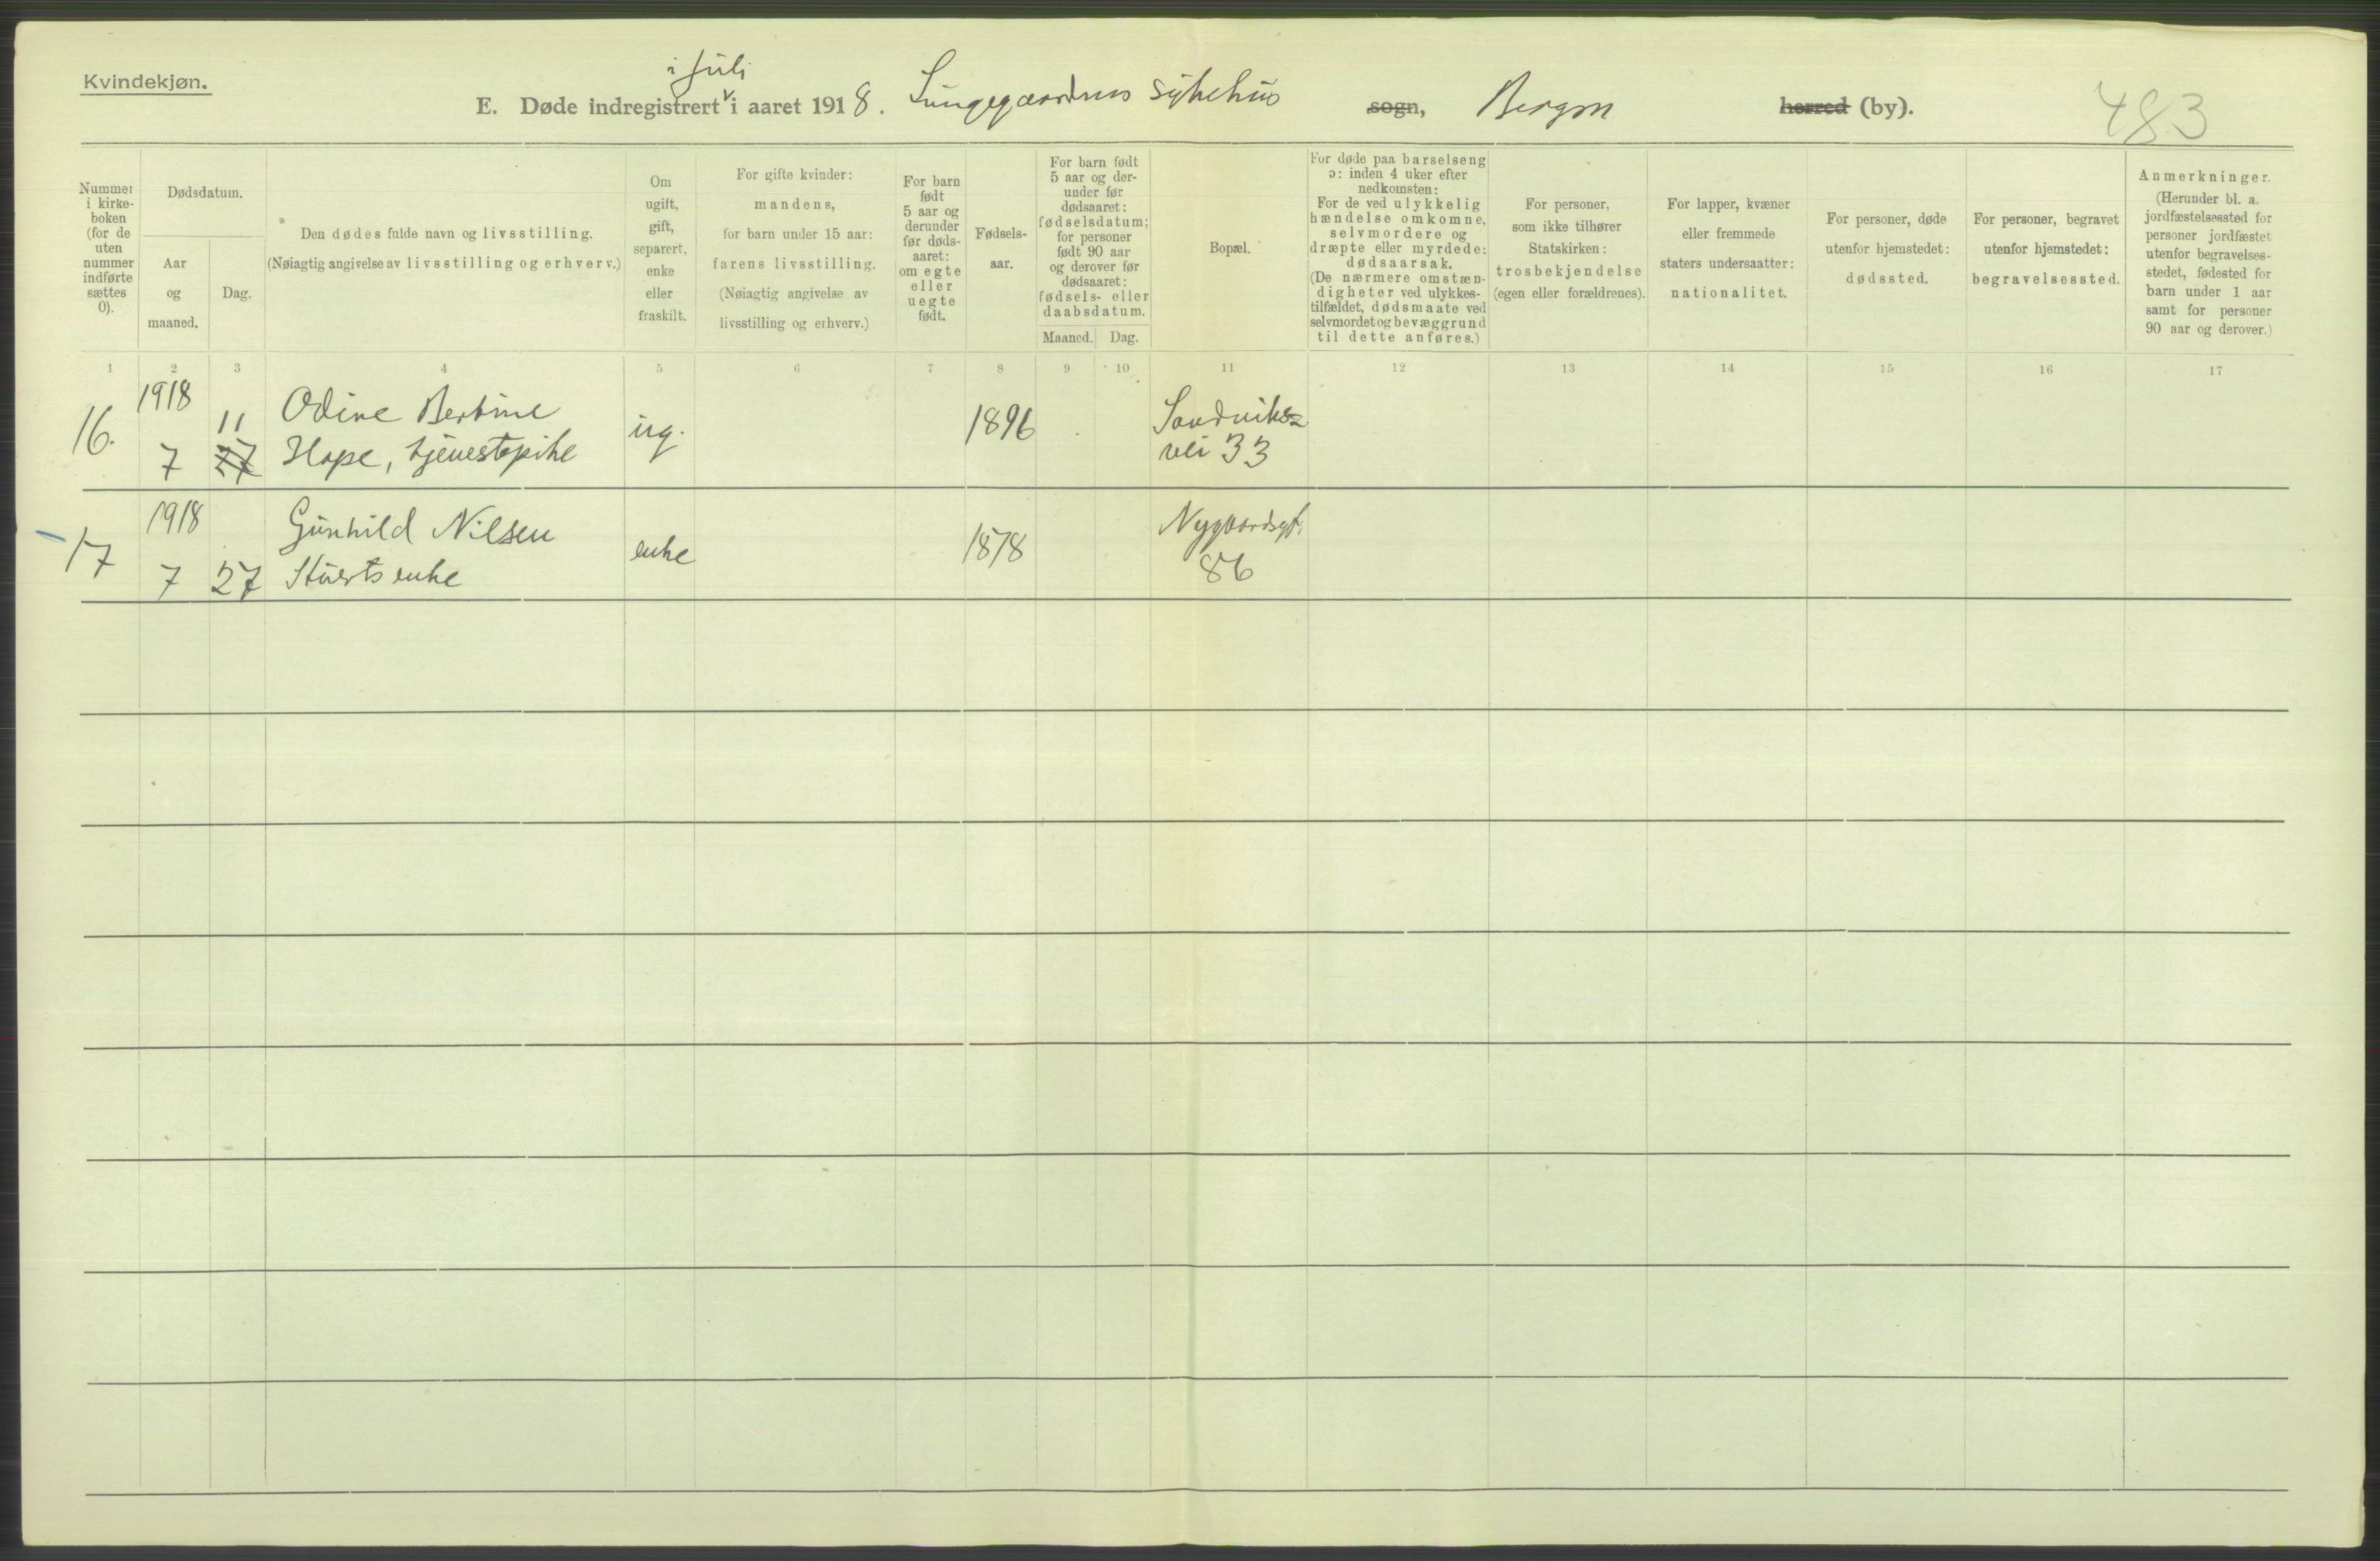 Kvindekjøn.
i Juli
E. Døde indregistrert i aaret 1918. Lungegaardens sykehus sogn, Bergen herred (by).
483
Nummer i kirke-
boken
(for de
uten
nummer
indførte
sættes
0).
Dødsdatum.
Aar
og
maaned.
Dag.
Den dødes fulde navn og livsstilling.
(Nøiagtig angivelse av livsstilling og erhverv.)
Om
ugift,
gift,
separert,
enke
eller
fraskilt.
For gifte kvinder:
mandens,
for barn under 15 aar:
farens livsstilling.
(Nøiagtig angivelse av
livsstilling og erhverv.)
For barn
født
5 aar og
derunder
før døds-
aaret:
om egte
eller
uegte
født.
Fødsels-
aar.
For barn født
5 aar og der-
under før
dødsaaret:
fødselsdatum;
for personer
født 90 aar
og derover før
dødsaaret:
fødsels- eller
daabsdatum.
Maaned. Dag.
Bopæl.
For døde paa barselseng
ɔ: inden 4 uker efter
nedkomsten:
For de ved ulykkelig
hændelse omkomne,
selvmordere og
dræpte eller myrdede:
dødsaarsak.
(De nærmere omstæn-
digheter ved ulykkes-
tilfældet, dødsmaate ved
selvmordet og bevæggrund
til dette anføres.)
For personer,
som ikke tilhører
Statskirken:
trosbekjendelse
(egen eller forældrenes).
For lapper, kvæner
eller fremmede
staters undersaatter:
nationalitet.
For personer, døde
utenfor hjemstedet:
dødssted.
For personer, begravet
utenfor hjemstedet:
begravelsessted.
Anmerkninger.
(Herunder bl. a.
jordfæstelsessted for
personer jordfæstet
utenfor begravelses-
stedet, fødested for
barn under 1 aar
samt for personer
90 aar og derover.)
1 2 3 4 5 6 7 8 9 10 11 12 13 14 15 16 17
1918 11 Odine Bertine 1896 Sandviks=
16. 7 27 Hope, tjenestepike ug. vei 33
1918 Gunhild Nilsen 1878 Nygaardsgt.
17 7 27 enke 86